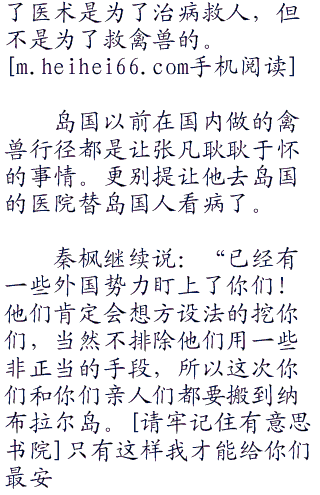 了医术是为了治病救人，但
不是为了救禽兽的。
[m.heihei66.com手机阅读]
岛国以前在国内做的禽
兽行径都是让张凡耿耿于怀
的事情。更别提让他去岛国
的医院替岛国人看病了。
秦枫继续说：“已经有
一些外国势力盯上了你们！
他们肯定会想方设法的挖你
们，当然不排除他们用一些
非正当的手段，所以这次你
们和你们亲人们都要搬到纳
布拉尔岛。[请牢记住有意思
书院]只有这样我才能给你们
最安